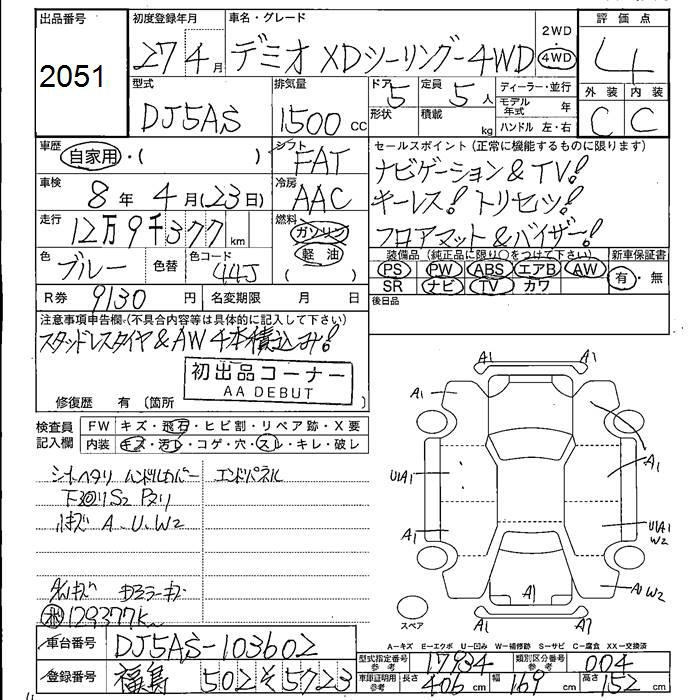 出品番号 初度登録年月 車名・グレード 2WD 評価点
2051 27年4月 デミオ XDツーリング-4WD 4WD 4
型式 排気量 ドア 5 定員 5人 ディーラー・並行 外装 内装
DJ5AS 1500cc 形状 積載 kg モデル年式 年 C C
ハンドル 左・右
車歴 自家用・( ) シフト FAT セールスポイント(正常に機能するものに限ります)
ナビゲーション&TV!
車検 8年4月(23日) 冷房 AAC キーレス! トリセツ!
走行 12万9千377km 燃料 ガソリン フロアマット&バイザー!
色 ブルー 色替 色コード 44J 軽油 ( )
装備品(純正品に限り○をつけて下さい) 新車保証書
PS PW ABS エアB AW 有・無
SR ナビ TV カワ
R券 9130円 名変期限 月 日 後日品
注意事項申告欄(不具合内容等は具体的に記入して下さい)
スタッドレスタイヤ&AW4本積込み!
初出品コーナー
AA DEBUT
修復歴 有(箇所 )
検査員 FW キズ・飛石・ヒビ割・リペア跡・X要
記入欄 内装 キズ・汚レ・コゲ・穴・スレ・キレ・破レ
シートヘタリ ハンドルカバー エンドパネル
下廻りS2 Pヌリ
小キズ A、U、W2
129377km
A1 A1
A1
A1
U1A1
U1A1
W2
A1
A1W2
A1
A1 A1
スペア
A-キズ E-エクボ U-凹み W-補修跡 S-サビ C-腐食 XX-交換済
車台番号 DJ5AS-103602
型式指定番号 参考 17934 類別区分番号 参考 004
登録番号 福島 502 そ 5723
車庫証明用 参考 長さ 406cm 幅 169cm 高さ 152cm